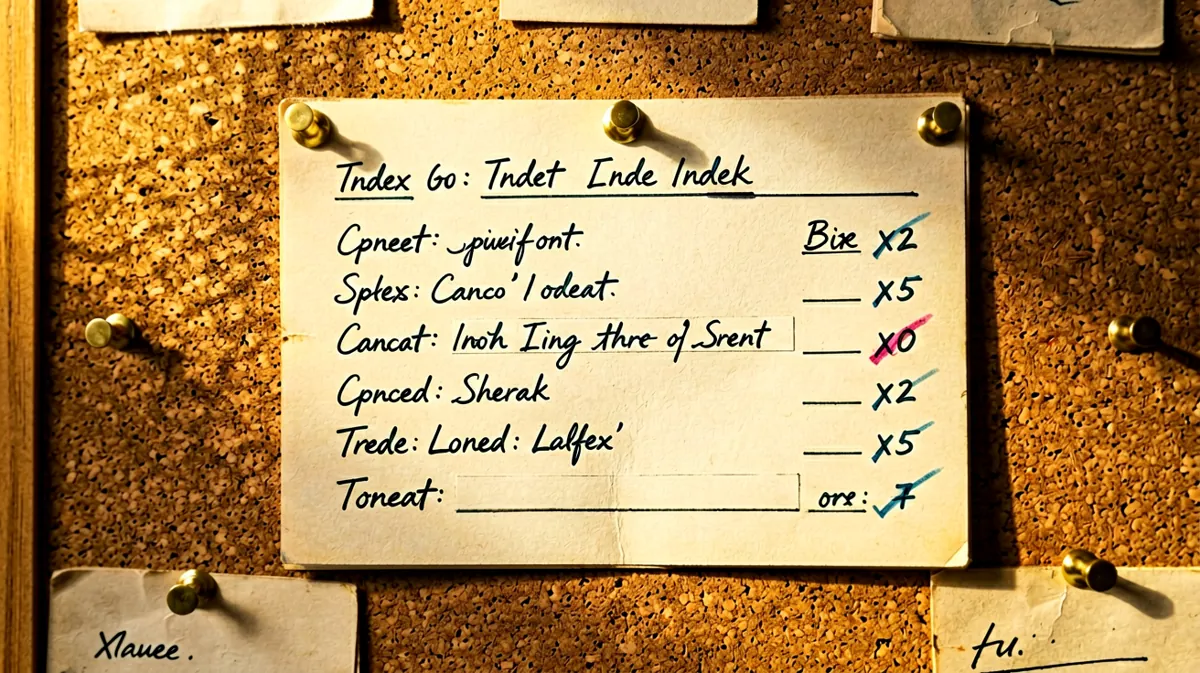 Tndex Go: Tndet Inde Indek
Cpneet: piveifont. Bixe X2
Sptex: Canco'l odeat. X5
Cancat: Inoh Iing thre of Srent X0
Cpnced: Sherak X2
Trede: Loned: Lalfex' X5
Toneat: orx: 7
Xlauee.
fu.